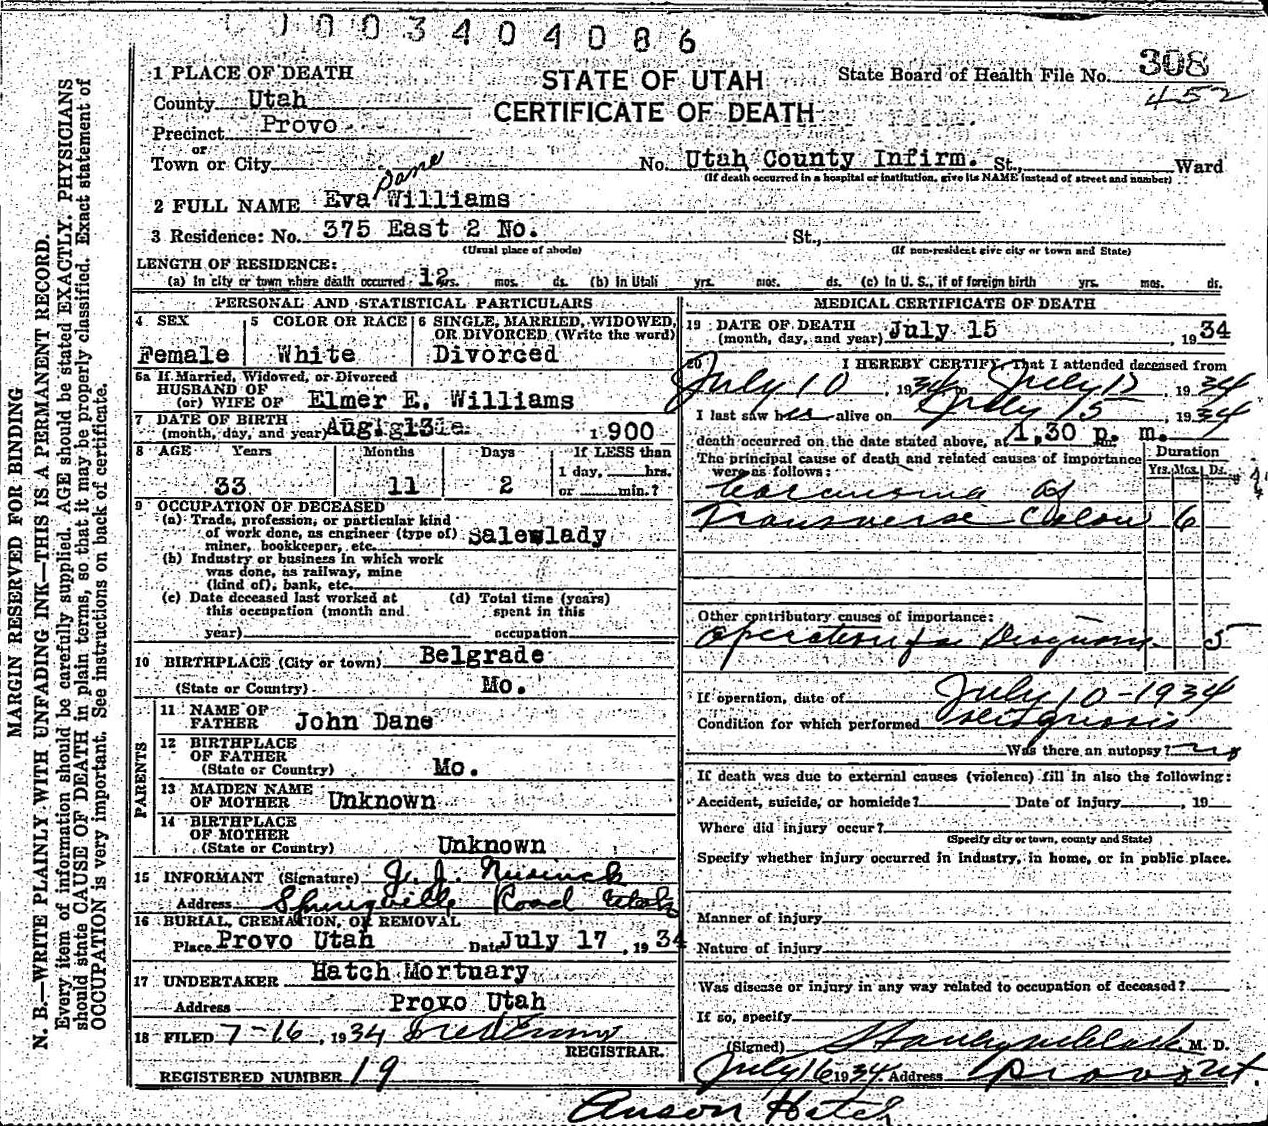 0003404086
STATE OF UTAH
CERTIFICATE OF DEATH
State Board of Health File No. 308
452
1 PLACE OF DEATH
County Utah
Precinct Provo
or
Town or City No. Utah County Infirm. St., Ward
(If death occurred in a hospital or institution, give its NAME instead of street and number)
Dane
2 FULL NAME Eva Williams
3 Residence: No. 375 East 2 No. St.,
(Usual place of abode) (If non-resident give city or town and State)
LENGTH OF RESIDENCE:
(a) In city or town where death occurred 12 yrs. mos. ds. (b) In Utah yrs. mos. ds. (c) In U. S., if of foreign birth yrs. mos. ds.
PERSONAL AND STATISTICAL PARTICULARS
4 SEX 5 COLOR OR RACE 6 SINGLE, MARRIED, WIDOWED,
OR DIVORCED (Write the word)
Female White Divorced
6a If Married, Widowed, or Divorced
HUSBAND OF
(or) WIFE OF Elmer E. Williams
7 DATE OF BIRTH
(month, day, and year) Aug. 13 1900
8 AGE Years Months Days If LESS than
1 day, hrs.
33 11 2 or min.?
9 OCCUPATION OF DECEASED
(a) Trade, profession, or particular kind
of work done, as engineer (type of)
miner, bookkeeper, etc. saleslady
(b) Industry or business in which work
was done, as railway, mine
(kind of), bank, etc.
(c) Date deceased last worked at (d) Total time (years)
this occupation (month and spent in this
year) occupation
10 BIRTHPLACE (City or town) Belgrade
(State or Country) Mo.
PARENTS
11 NAME OF
FATHER John Dane
12 BIRTHPLACE
OF FATHER
(State or Country) Mo.
13 MAIDEN NAME
OF MOTHER Unknown
14 BIRTHPLACE
OF MOTHER
(State or Country) Unknown
15 INFORMANT (Signature) J. J.
Address Springville Road Utah
16 BURIAL, CREMATION, OR REMOVAL
Place Provo Utah Date July 17, 1934
17 UNDERTAKER Hatch Mortuary
Address Provo Utah
18 FILED 7-16, 1934
REGISTRAR.
REGISTERED NUMBER 19
MEDICAL CERTIFICATE OF DEATH
19 DATE OF DEATH
(month, day, and year) July 15, 1934
20 I HEREBY CERTIFY, That I attended deceased from
July 10, 1934 to July 15, 1934
I last saw her alive on July 15, 1934
death occurred on the date stated above, at 1.30 p. m.
The principal cause of death and related causes of importance
were as follows:
Duration
Yrs. Mos. Ds.
Carcinoma of
Transverse Colon 6
Other contributory causes of importance:
Operation for Diagnosis 5
If operation, date of July 10-1934
Condition for which performed Diagnosis
Was there an autopsy? no
If death was due to external causes (violence) fill in also the following:
Accident, suicide, or homicide? Date of injury, 19
Where did injury occur?
(Specify city or town, county and State)
Specify whether injury occurred in industry, in home, or in public place.
Manner of injury
Nature of injury
Was disease or injury in any way related to occupation of deceased?
If so, specify
(Signed) M. D.
July 16 1934 Address Provo Ut.
Anson Hatch
MARGIN RESERVED FOR BINDING
N. B.—WRITE PLAINLY WITH UNFADING INK—THIS IS A PERMANENT RECORD.
Every item of information should be carefully supplied. AGE should be stated EXACTLY. PHYSICIANS
should state CAUSE OF DEATH in plain terms, so that it may be properly classified. Exact statement of
OCCUPATION is very important. See instructions on back of certificate.